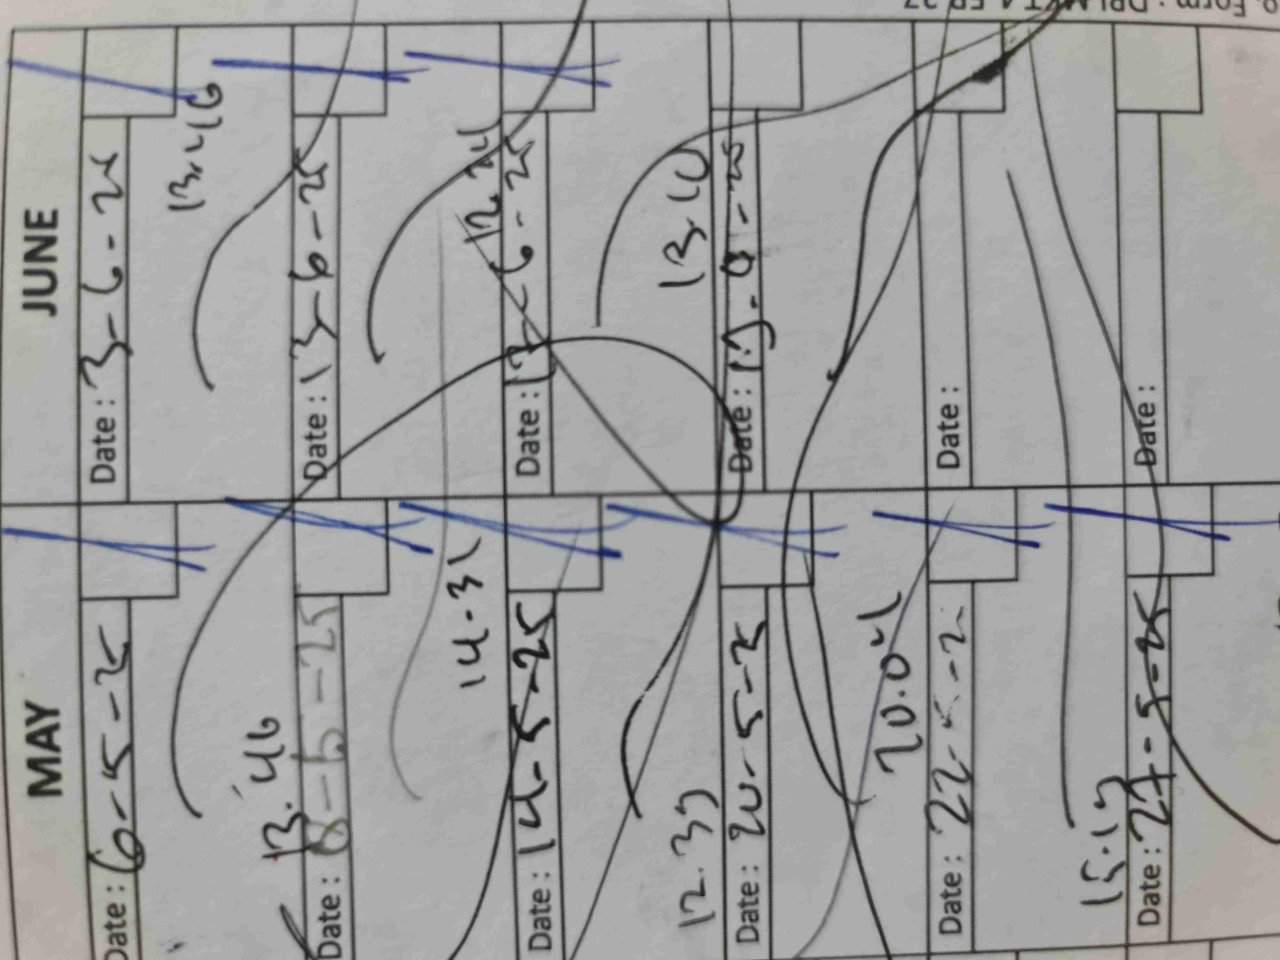 MAY
Date : 6-5-25
13.46
Date : 8-5-25
14.31
Date : 14-5-25
12.39
Date : 20-5-25
20.04
Date : 22-5-2
15.19
Date : 27-5-25
JUNE
Date : 3-6-25
13.46
Date : 13-6-25
12.24
Date : 17-6-25
13.10
Date : 19-6-25
Date :
Date :